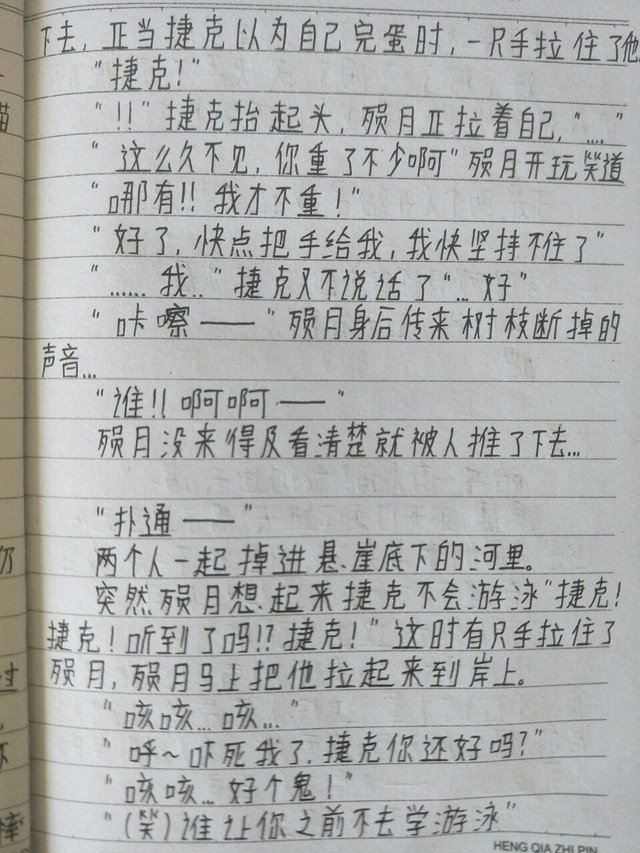 下去，正当捷克以为自己完蛋时，一只手拉住了他
"捷克！"
"!!" 捷克抬起头，殒月正拉着自己，"...."
"这么久不见，你重了不少啊"殒月开玩笑道
"哪有!! 我才不重！"
"好了，快点把手给我，我快坚持不住了"
"...... 我.." 捷克又不说话了"... 好"
"咔嚓——" 殒月身后传来树枝断掉的
声音...
"谁!! 啊啊——"
殒月没来得及看清楚就被人推了下去...
"扑通——"
两个人一起掉进悬崖底下的河里。
突然殒月想起来捷克不会游泳"捷克！
捷克！听到了吗!? 捷克！"这时有只手拉住了
殒月，殒月马上把他拉起来到岸上。
"咳咳... 咳..."
"呼~ 吓死我了，捷克你还好吗?"
"咳咳... 好个鬼！"
"(笑) 谁让你之前不去学游泳"
HENG QIA ZHI PIN